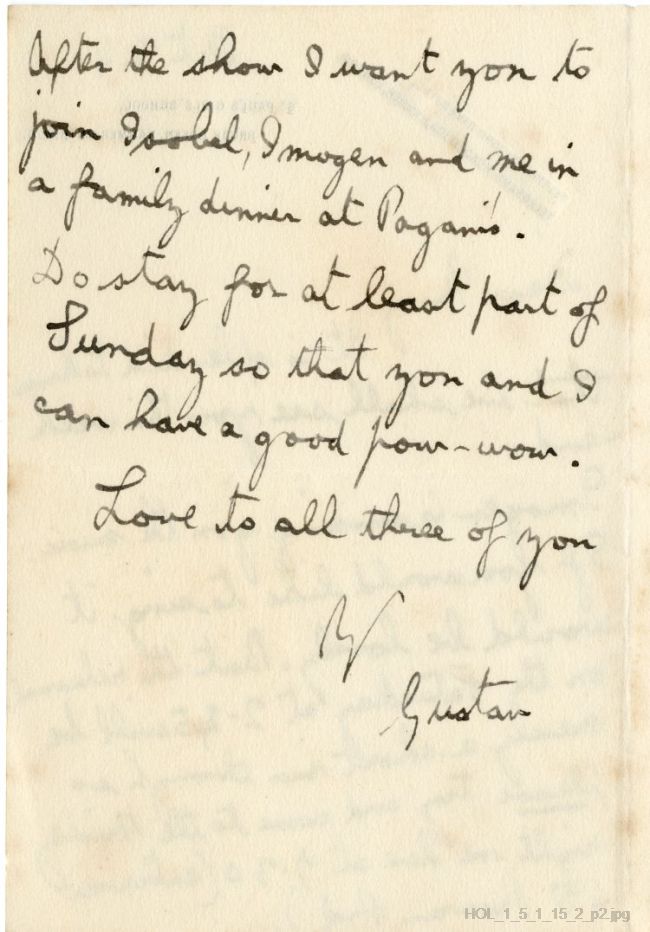 After the show I want you to
join Isobel, Imogen and me in
a family dinner at Pagani's.
Do stay for at least part of
Sunday so that you and I
can have a good pow-wow.
Love to all three of you
Gustav
HOL_1_5_1_15_2_p2.jpg